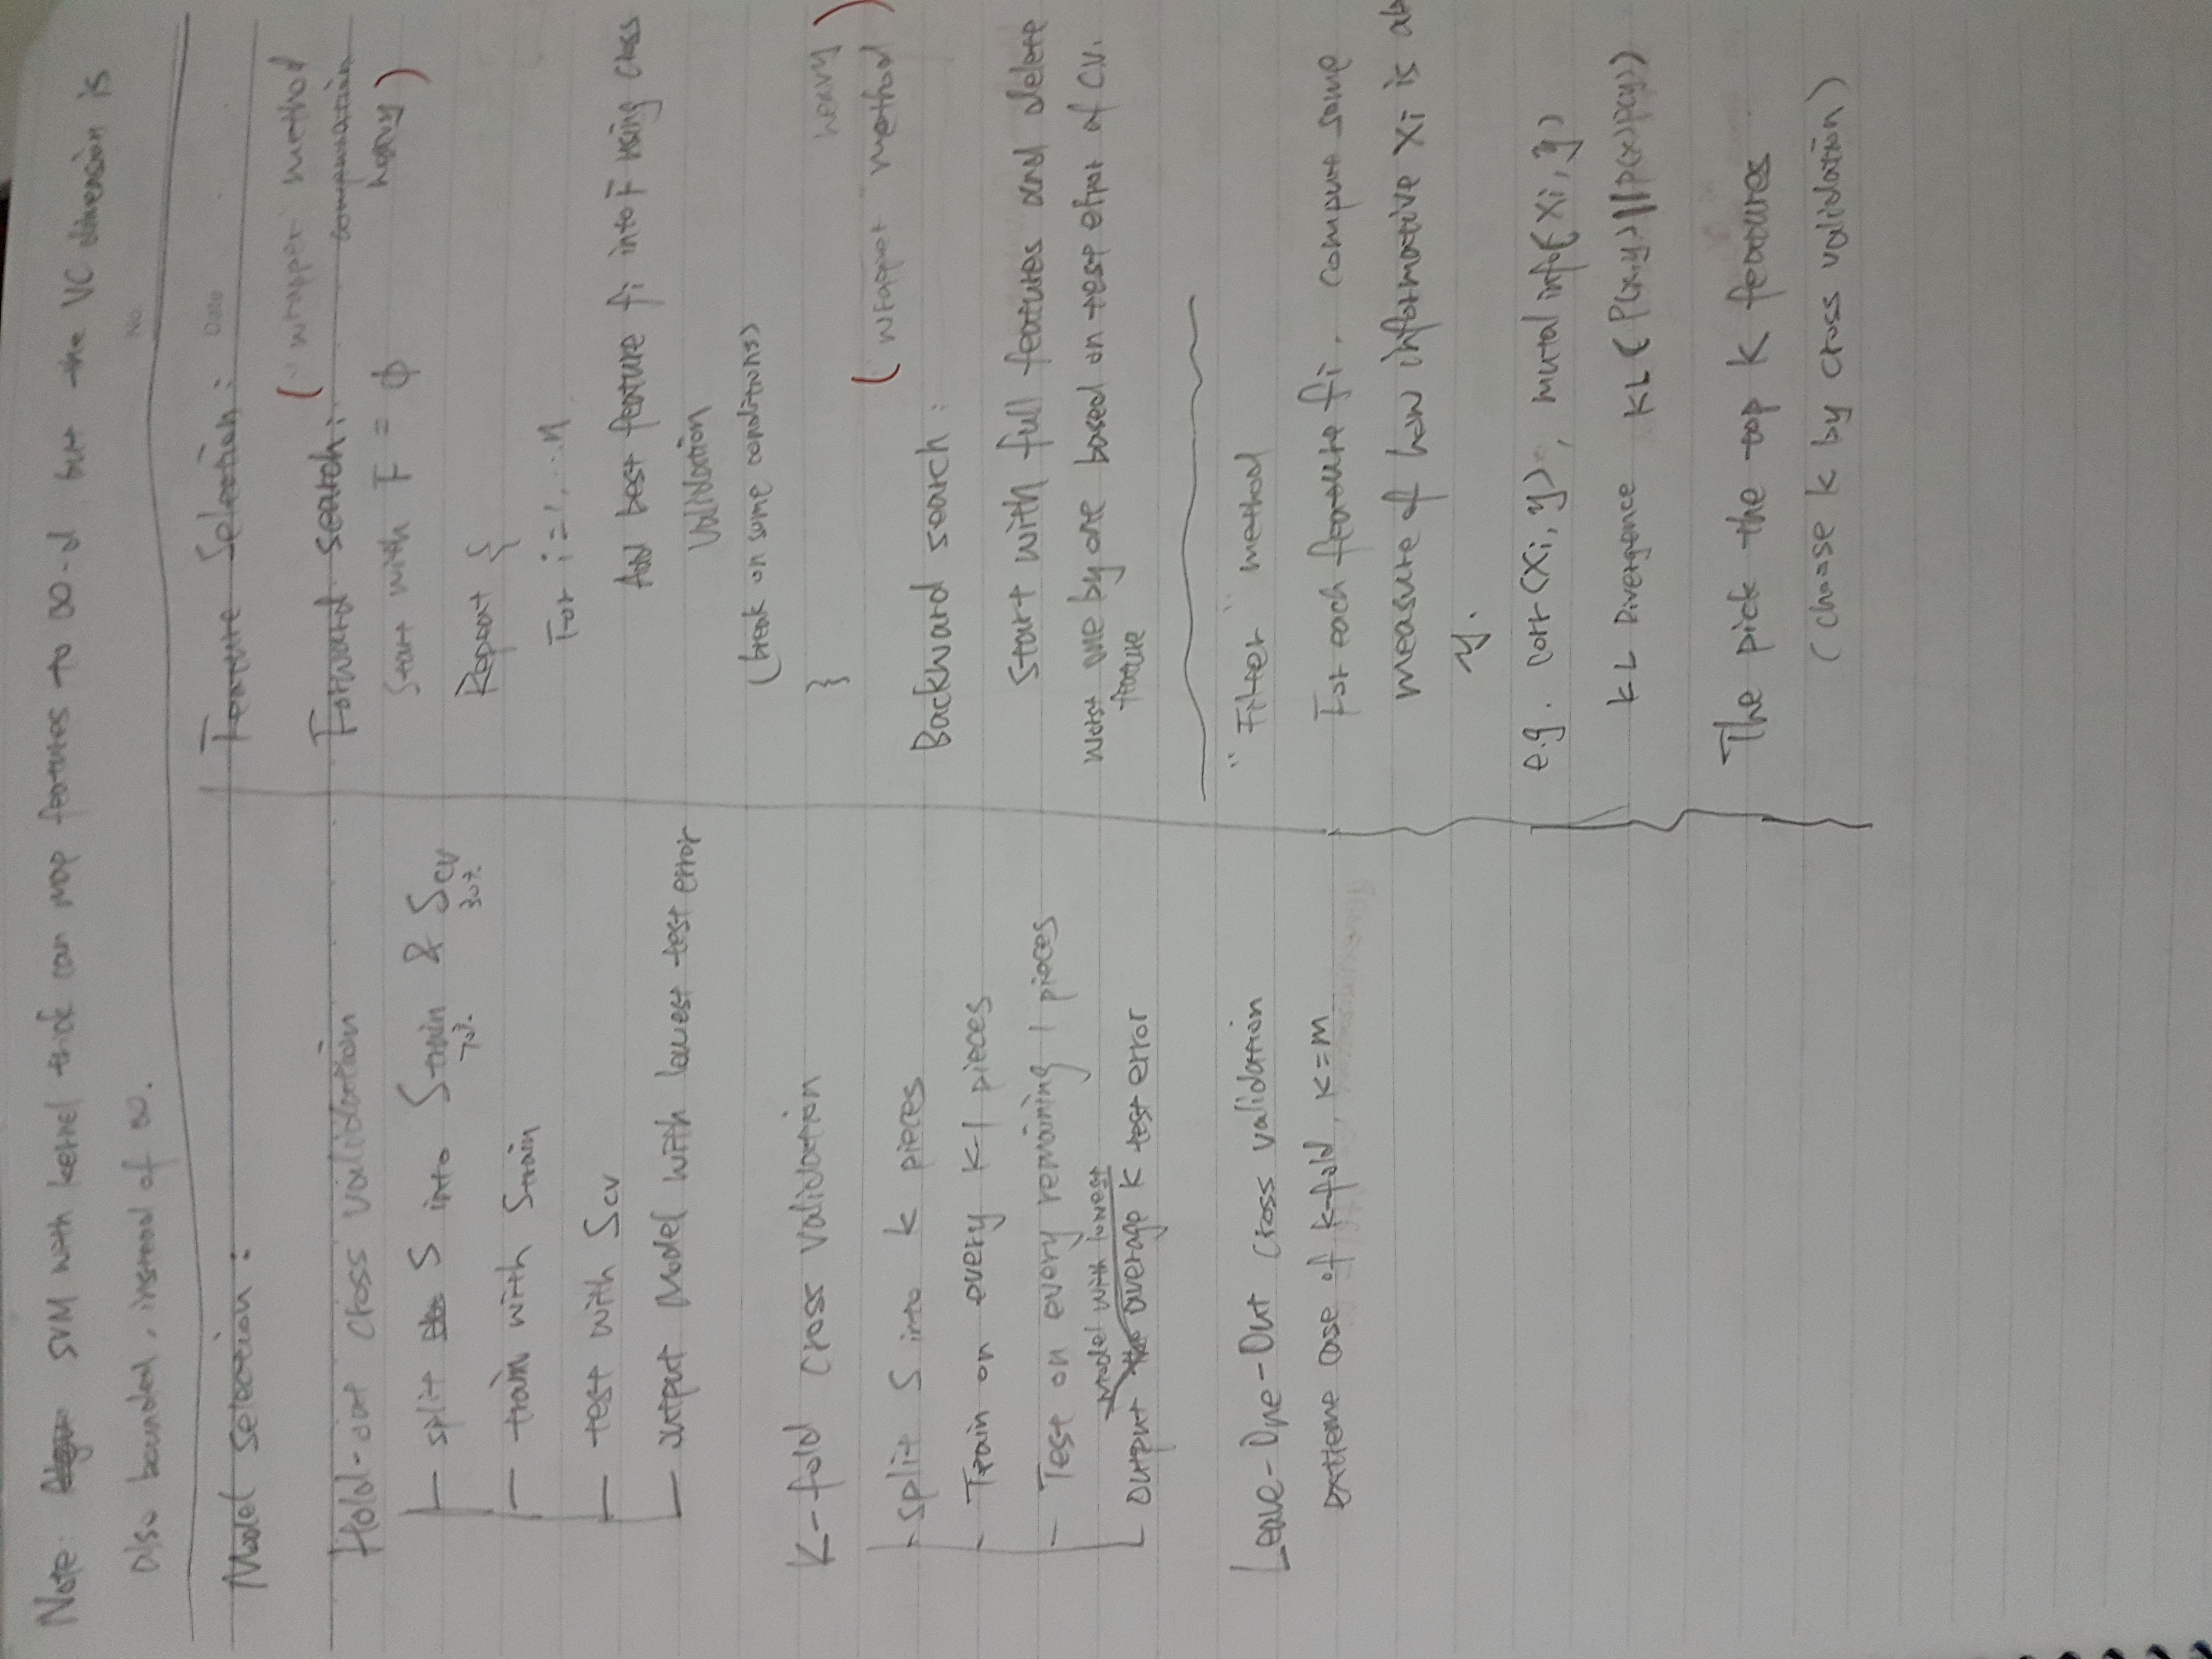 Note. SVM with kernel trick can map features to ∞-d, but the VC dimension is
also bounded, instead of ∞.
No.
Date
Model selection:
Hold-out cross validation
split S into Strain & Scv
70% 30%
train with Strain
test with Scv
output Model with lowest test error
K-fold cross validation
split S into k pieces
Train on every k-1 pieces
Test on every remaining 1 pieces
Model with lowest
output average K test error
Leave-One-Out cross validation
extreme case of k-fold, K=m
Feature Selection:
("wrapper" method
Forward search:
computation
heavy)
Start with F = ϕ
Repeat {
For i=1,...n
Add best feature fi into F using cross
validation
(break on some conditions)
}
heavy
(wrapper method)
Backward search:
start with full features and delete
worst one by one based on test error of C.V.
feature
"Filter" method
For each feature fi, compute some
measure of how informative xi is ab
y.
e.g. corr(xi, y), mutal info(xi, y)
KL Divergence KL(P(x,y)||P(x)P(y))
The pick the top K features
(choose k by cross validation)